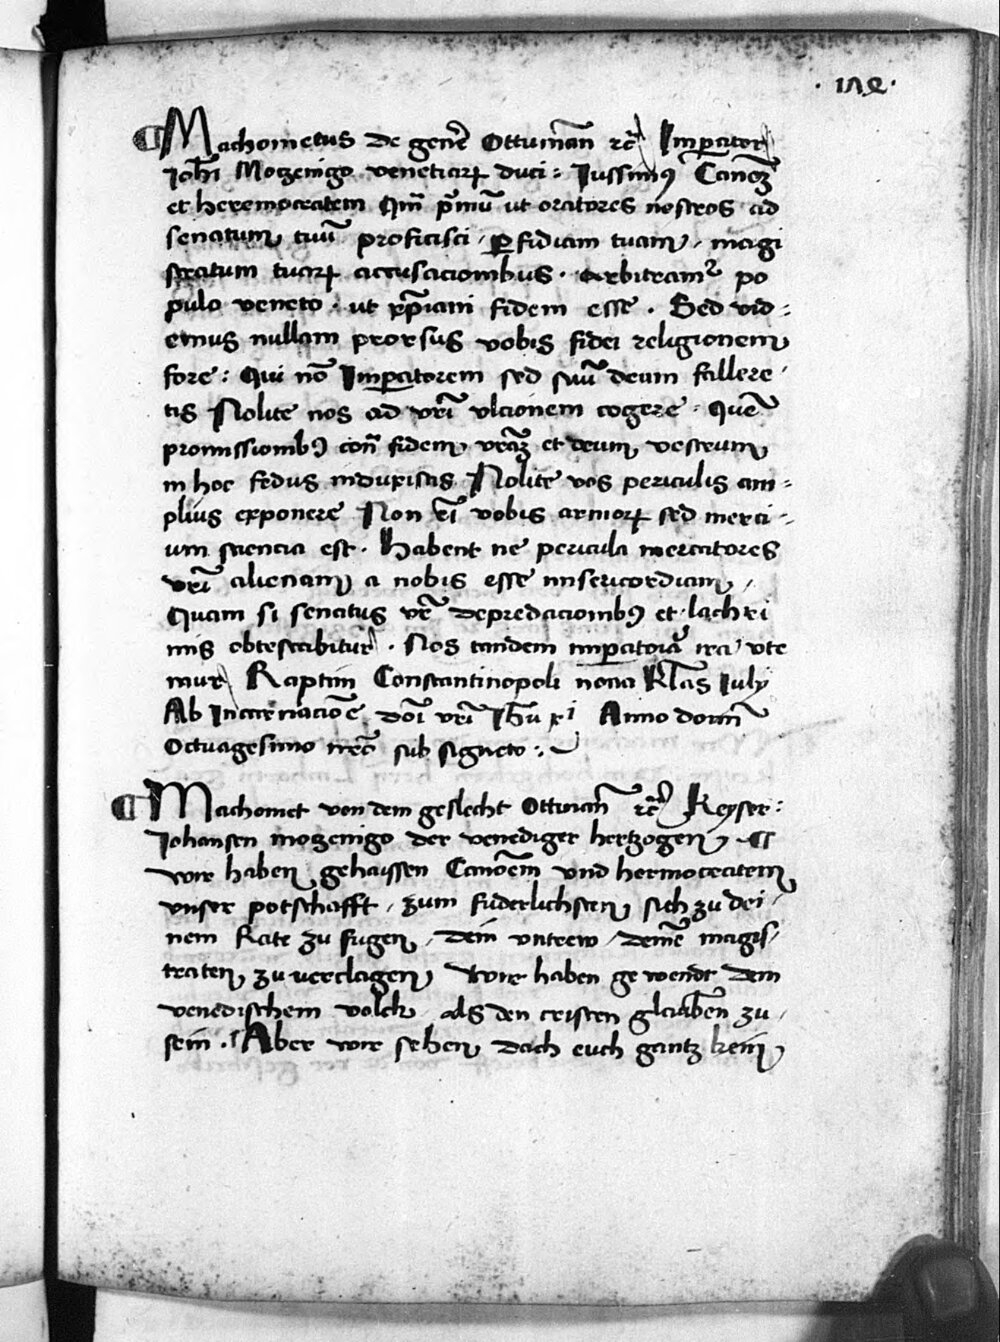 ·189·
¶ Machometus de genẽ Ottumãn ꝛc̃ Imperator
Joh̃i Mozenigo venetiaꝝ duci : Iussimꝰ Canoẽ
et heremocratem Qm̃ pͥmũ ut oratores nostros ad
senatum tuũ proficisci , ꝑfidiam tuam , magi
stratum tuaꝝ accusacionibus · Arbitramͬ po
pulo veneto · ut xp̃iani fidem esse · Sed vid-
emus nullam prorsus vobis fidei religionem
fore : Qui nõ Imperatorem sed suũ deum fallere-
tis Nolite nos ad vr̃i ulcionem cogere · Quẽ
promissionibꝰ con̄ fidem vrãꝫ et deum vestrum
in hoc fedus induxistis Nolite vos periculis am-
plius exponere Non em̃ vobis armoꝝ sed merci-
um sciencia est · Habent ne pericula mercatores
vr̃i alienam a nobis esse misericordiam ,
Quam si senatus vr̃ depredacionibꝰ et lachri
mis obtestabitur · Nos tandem imperatoria ira ute
mur Raptim Constantinopoli nona Kl̃as July
Ab Incarnaciõe dñi vr̃i Ih̃u xͥ Anno domĩ
Octuagesimo nrẽc sub signeto :
¶ Machomet von dem geslecht Ottmãn ꝛc̃ Keyser :
Johansen mozenigo der venediger hertzogen , ¶
wir haben gehaissen Canoẽm und hermocratem
unser potschafft , zum fuderlichsten sich zu dei-
nem Rate zu fugen , dein untrew , deinẽ magis-
traten zu verclagen Wir haben gewendt dem
venedischem volck , als den cristen glauben zu ,
sein · Aber wir sehen dach euch gantz kein